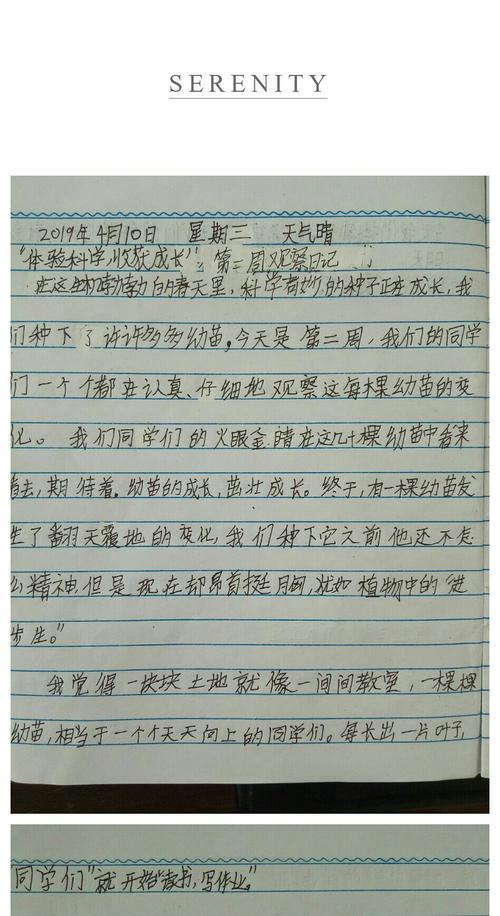 SERENITY
2019年4月10日 星期三 天气晴
"体验科学,收获成长":第二周观察日记
在这生机勃勃的春天里,科学奇妙的种子正在成长,我
们种下了许许多多幼苗,今天是第二周,我们的同学
们一个个都在认真、仔细地观察这每棵幼苗的变
化。我们同学们的火眼金睛在这几十棵幼苗中看来
看去,期待着.幼苗的成长,茁壮成长。终于,有一棵幼苗发
生了翻天覆地的变化,我们种下它之前他还不怎
么精神.但是现在却昂首挺胸,犹如植物中的"进
步生。"
我觉得一块块土地就像一间间教室,一棵棵
幼苗,相当于一个个天天向上的同学们。每长出一片叶子,
"同学们"就开始"读书,写作业。"